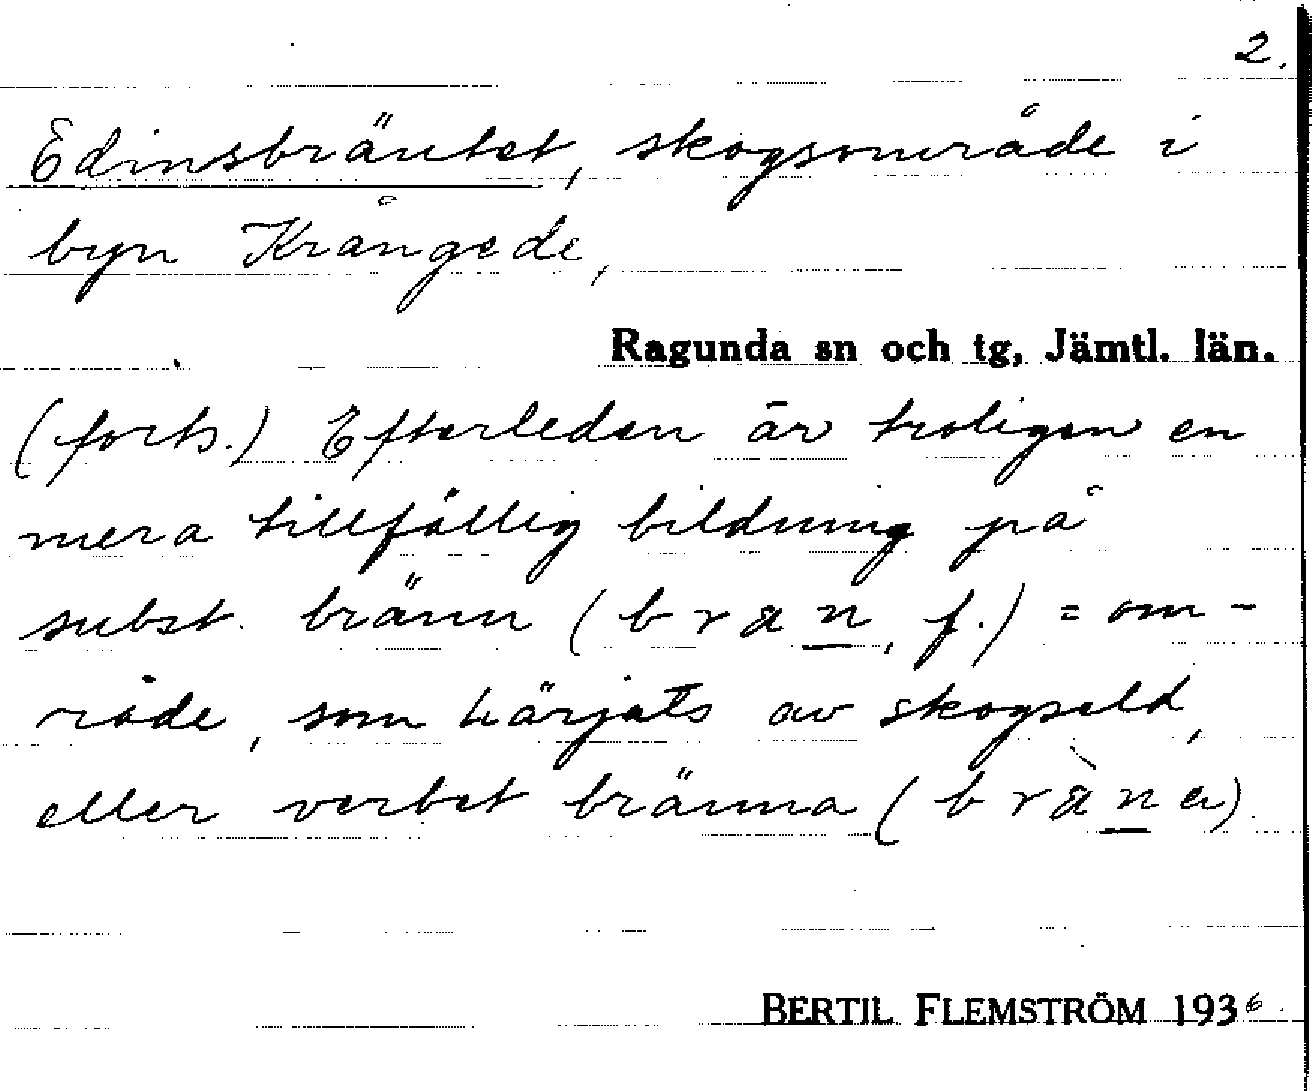 2.
Edinsbräntet, skogsområde i
byn Krångede,
Ragunda sn och tg, Jämtl. län.
(forts.) Efterleden är troligen en
mera tillfällig bildning på
subst. bränn (bræn, f.) = om-
råde, som härjats av skogseld,
eller verbet bränna (bræ̀na).
BERTIL FLEMSTRÖM 1936